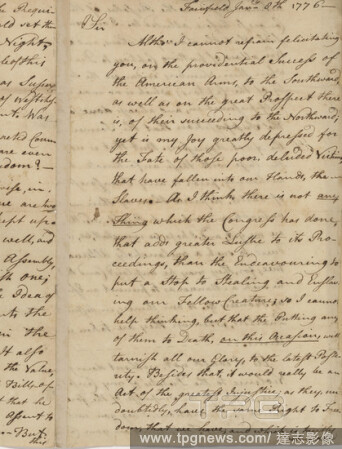 Fairfield Jany. 8th. 1776—
Sir
Altho' I cannot refrain felicitating
you, on the providential Success of
the American Arms, to the Southward,
as well as on the great Prospect there
is, of their succeeding to the Northward,
yet is my Joy greatly depressed for
the Fate of those poor, deluded Victims
that have fallen into our Hands, the
Slaves. As I think, there is not any
thing which the Congress has done,
that adds greater Lustre to its Pro-
ceedings, than the Endeavouring to
put a Stop to Stealing and Enslav
ing our Fellow Creatures; so I cannot
help thinking, but that the Putting any
of them to Death, on this Occasion, will
tarnish all our Glory, to the latest Poste
rity. Besides that, it would really be an
Act of the greatest Injustice; as they, un
doubtedly, have the same Right to Free
dom, that we have, and
Night
of this
as Suppos
Was
are even
dom?—
are
kept up
well, and
Assembly,
the Idea of
to the
in the
it also
the Value,
that he
Assent to
But
this
TPG
www.tpgnews.com / 達志影像